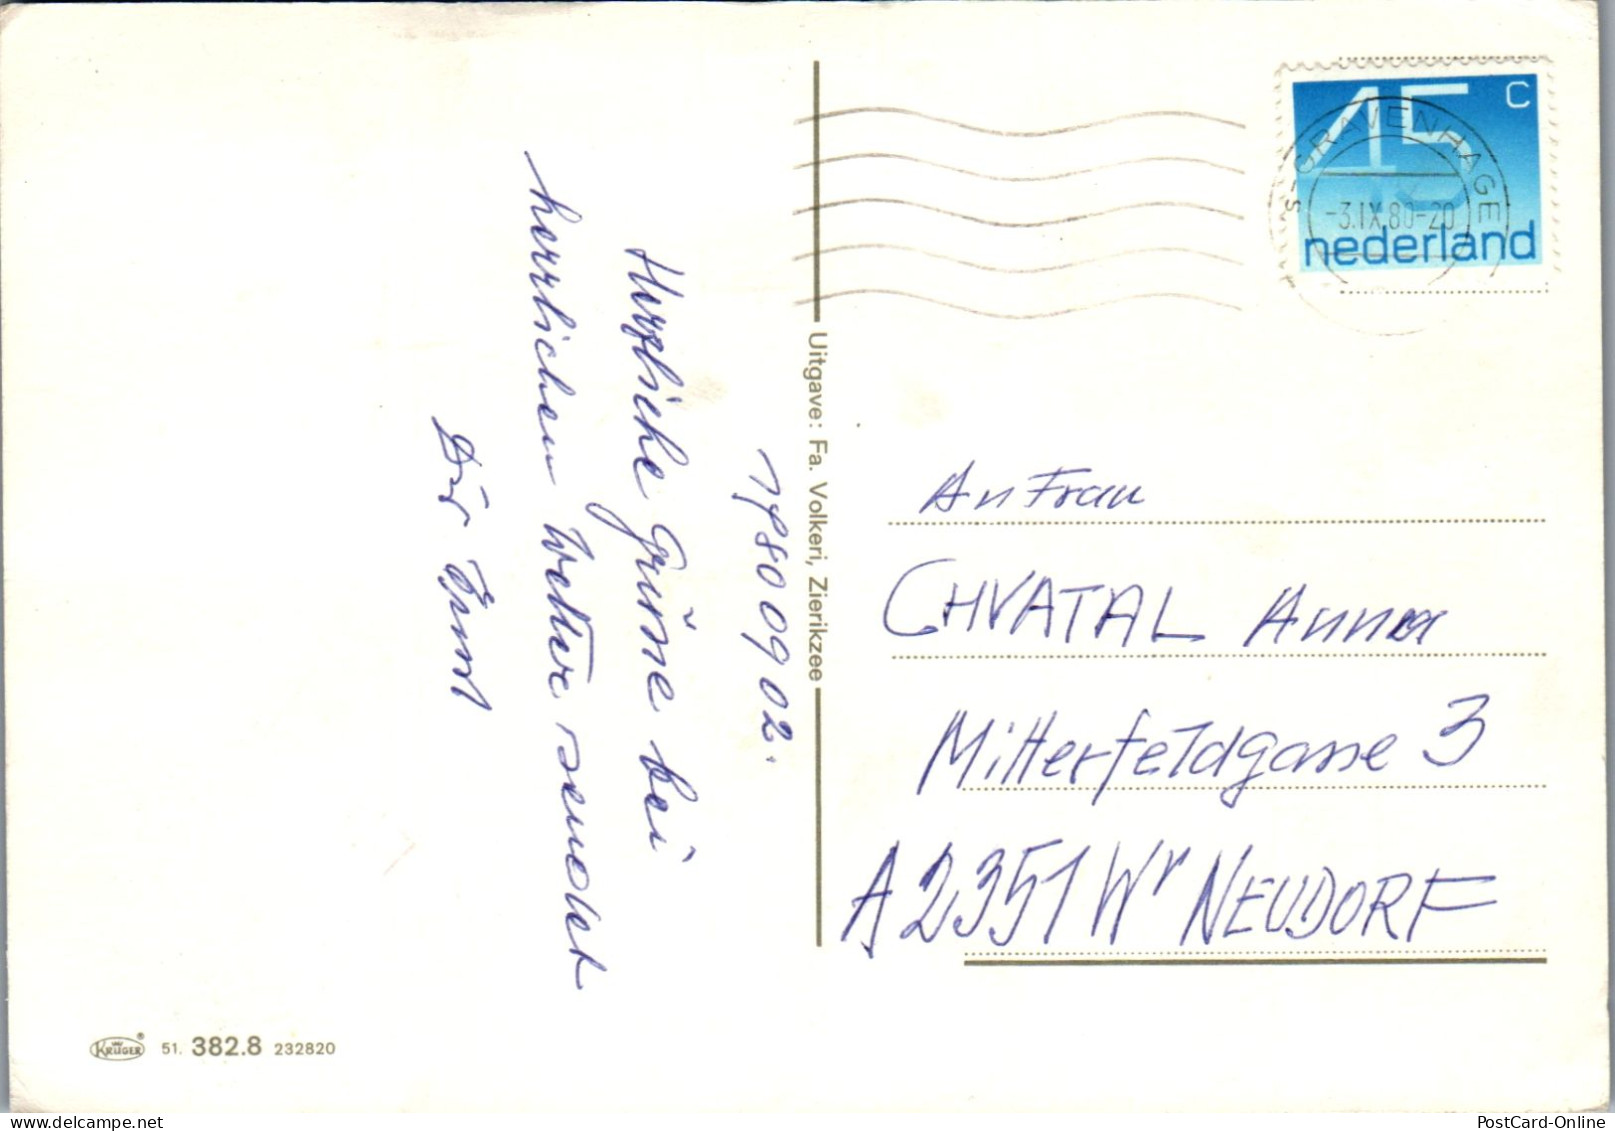 19800902.
Herzliche Grüße bei
herrlichem Wetter sendet
Dir Ernst
Uitgave: Fa. Volkeri, Zierikzee
45 C
nederland
'S-GRAVENHAGE
-3.IX.80-20
An Frau
CHVATAL Anna
Mitterfeldgasse 3
A 2351 Wr NEUDORF
KRÜGER® 51. 382.8 232820
PostCard-Online